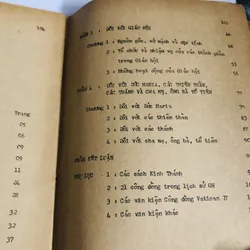 104
Trang
05
05
09
11
26
26
32
32
37
PHẦN 3 : ĐỐI VỚI GIÁO HỘI
Chương 1 : Nguồn gốc, sứ mệnh và đặc tính
2 : Tổ chức và nhiệm vụ của các thành phần
trong Giáo hội
3 : Những hoạt động của Giáo hội
PHẦN 4 : ĐỐI VỚI ĐỨC MARIA, CÁC THIÊN THẦN,
CÁC THÁNH VÀ CHA MẸ, ÔNG BÀ TỔ TIÊN
Chương 1 : Đối với Đức Maria
2 : Đối với các thiên thần
3 : Đối với các thánh
4 : Đối với cha mẹ, ông bà, tổ tiên
PHẦN KẾT LUẬN
PHỤ LỤC
1 : Các sách Kinh Thánh
2 : 21 công đồng trong lịch sử GH
3 : Các văn kiện Công đồng Vatican II
4 : Các văn kiện khác